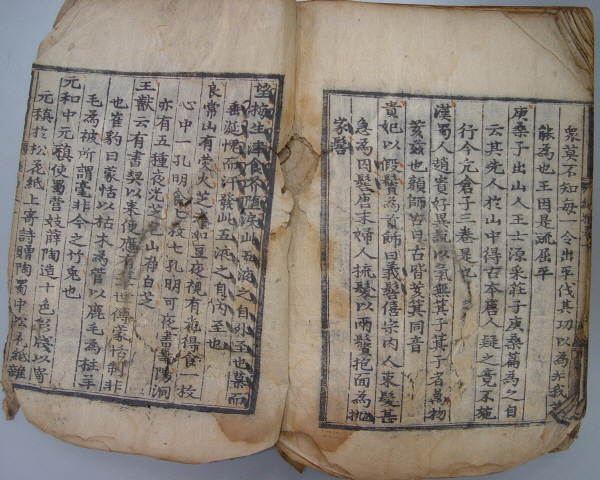 眾莫不知每一令出平伐其功以為非我
能為也王因是疏屈平
庚桑子出山人王士源采莊子庚桑篇為之自
云其先人於山中得古本唐人疑之竟不施
行今亢倉子三卷是也
漢蜀人趙賓好異說以氣無箕子箕子者萬物
荄茲也顏師古曰古皆荄箕同音
貴妃以假鬢為首飾曰義髻僖宗內人束髮甚
急為囚髻唐末婦人梳髮以兩鬢抱面為拋
家髻
望梅生津食芥墮淚此五液之自外至也慕而
垂涎愧而汗發此五液之自內至也
良常山有螢火芝如豆夜視有得食一枚
心中一孔明食七枚七孔明可夜書陽洞
亦有五種夜光芝山有白芝
王獻云有書契以來便應世傳蒙恬制非
也崔豹曰蒙恬以枯木為管以鹿毛為柱羊
毛為被所謂毫非今之竹兔也
元和中元稹使蜀營妓薛陶造十色彩牋以寄
元稹於松花紙上寄詩贈陶蜀中松花紙雜